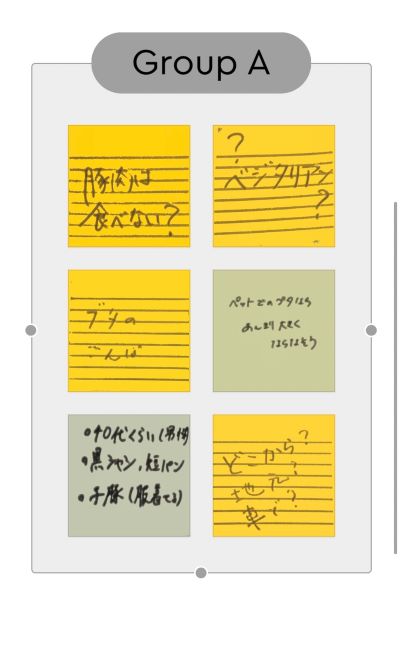 Group A
豚肉は
食べない?
?
ベジタリアン
?
ブタの
ブタなら
あんまり大きく
ならなそう
•40代くらい(男性
•黒シャツ、短パン
•子豚(服着てる)
どこから?
地元?
車で?